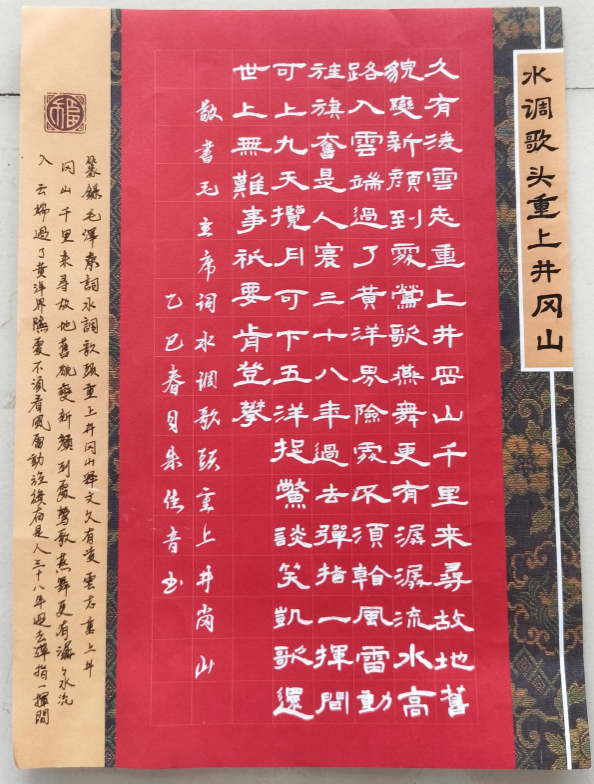 水调歌头重上井冈山
久有凌雲志重上井岡山千里来尋故地舊
貌變新顔到處鶯歌燕舞更有潺潺流水高
路入雲端過了黄洋界險處不須看風雷動
旌旗奮是人寰三十八年過去彈指一揮間
可上九天攬月可下五洋捉鱉談笑凱歌還
世上無難事祇要肯登攀
敬書毛主席词水调歌頭重上井岗山
乙巳春月朱佳音书
福
篆録毛澤東詞水調歌頭重上井冈山釋文久有凌雲志重上井
冈山千里来尋故地舊貌變新顔到處鶯歌燕舞更有潺々水流
入云端過了黄洋界險處不須看風雷動旌旗奋是人三十八年過去彈指一揮間